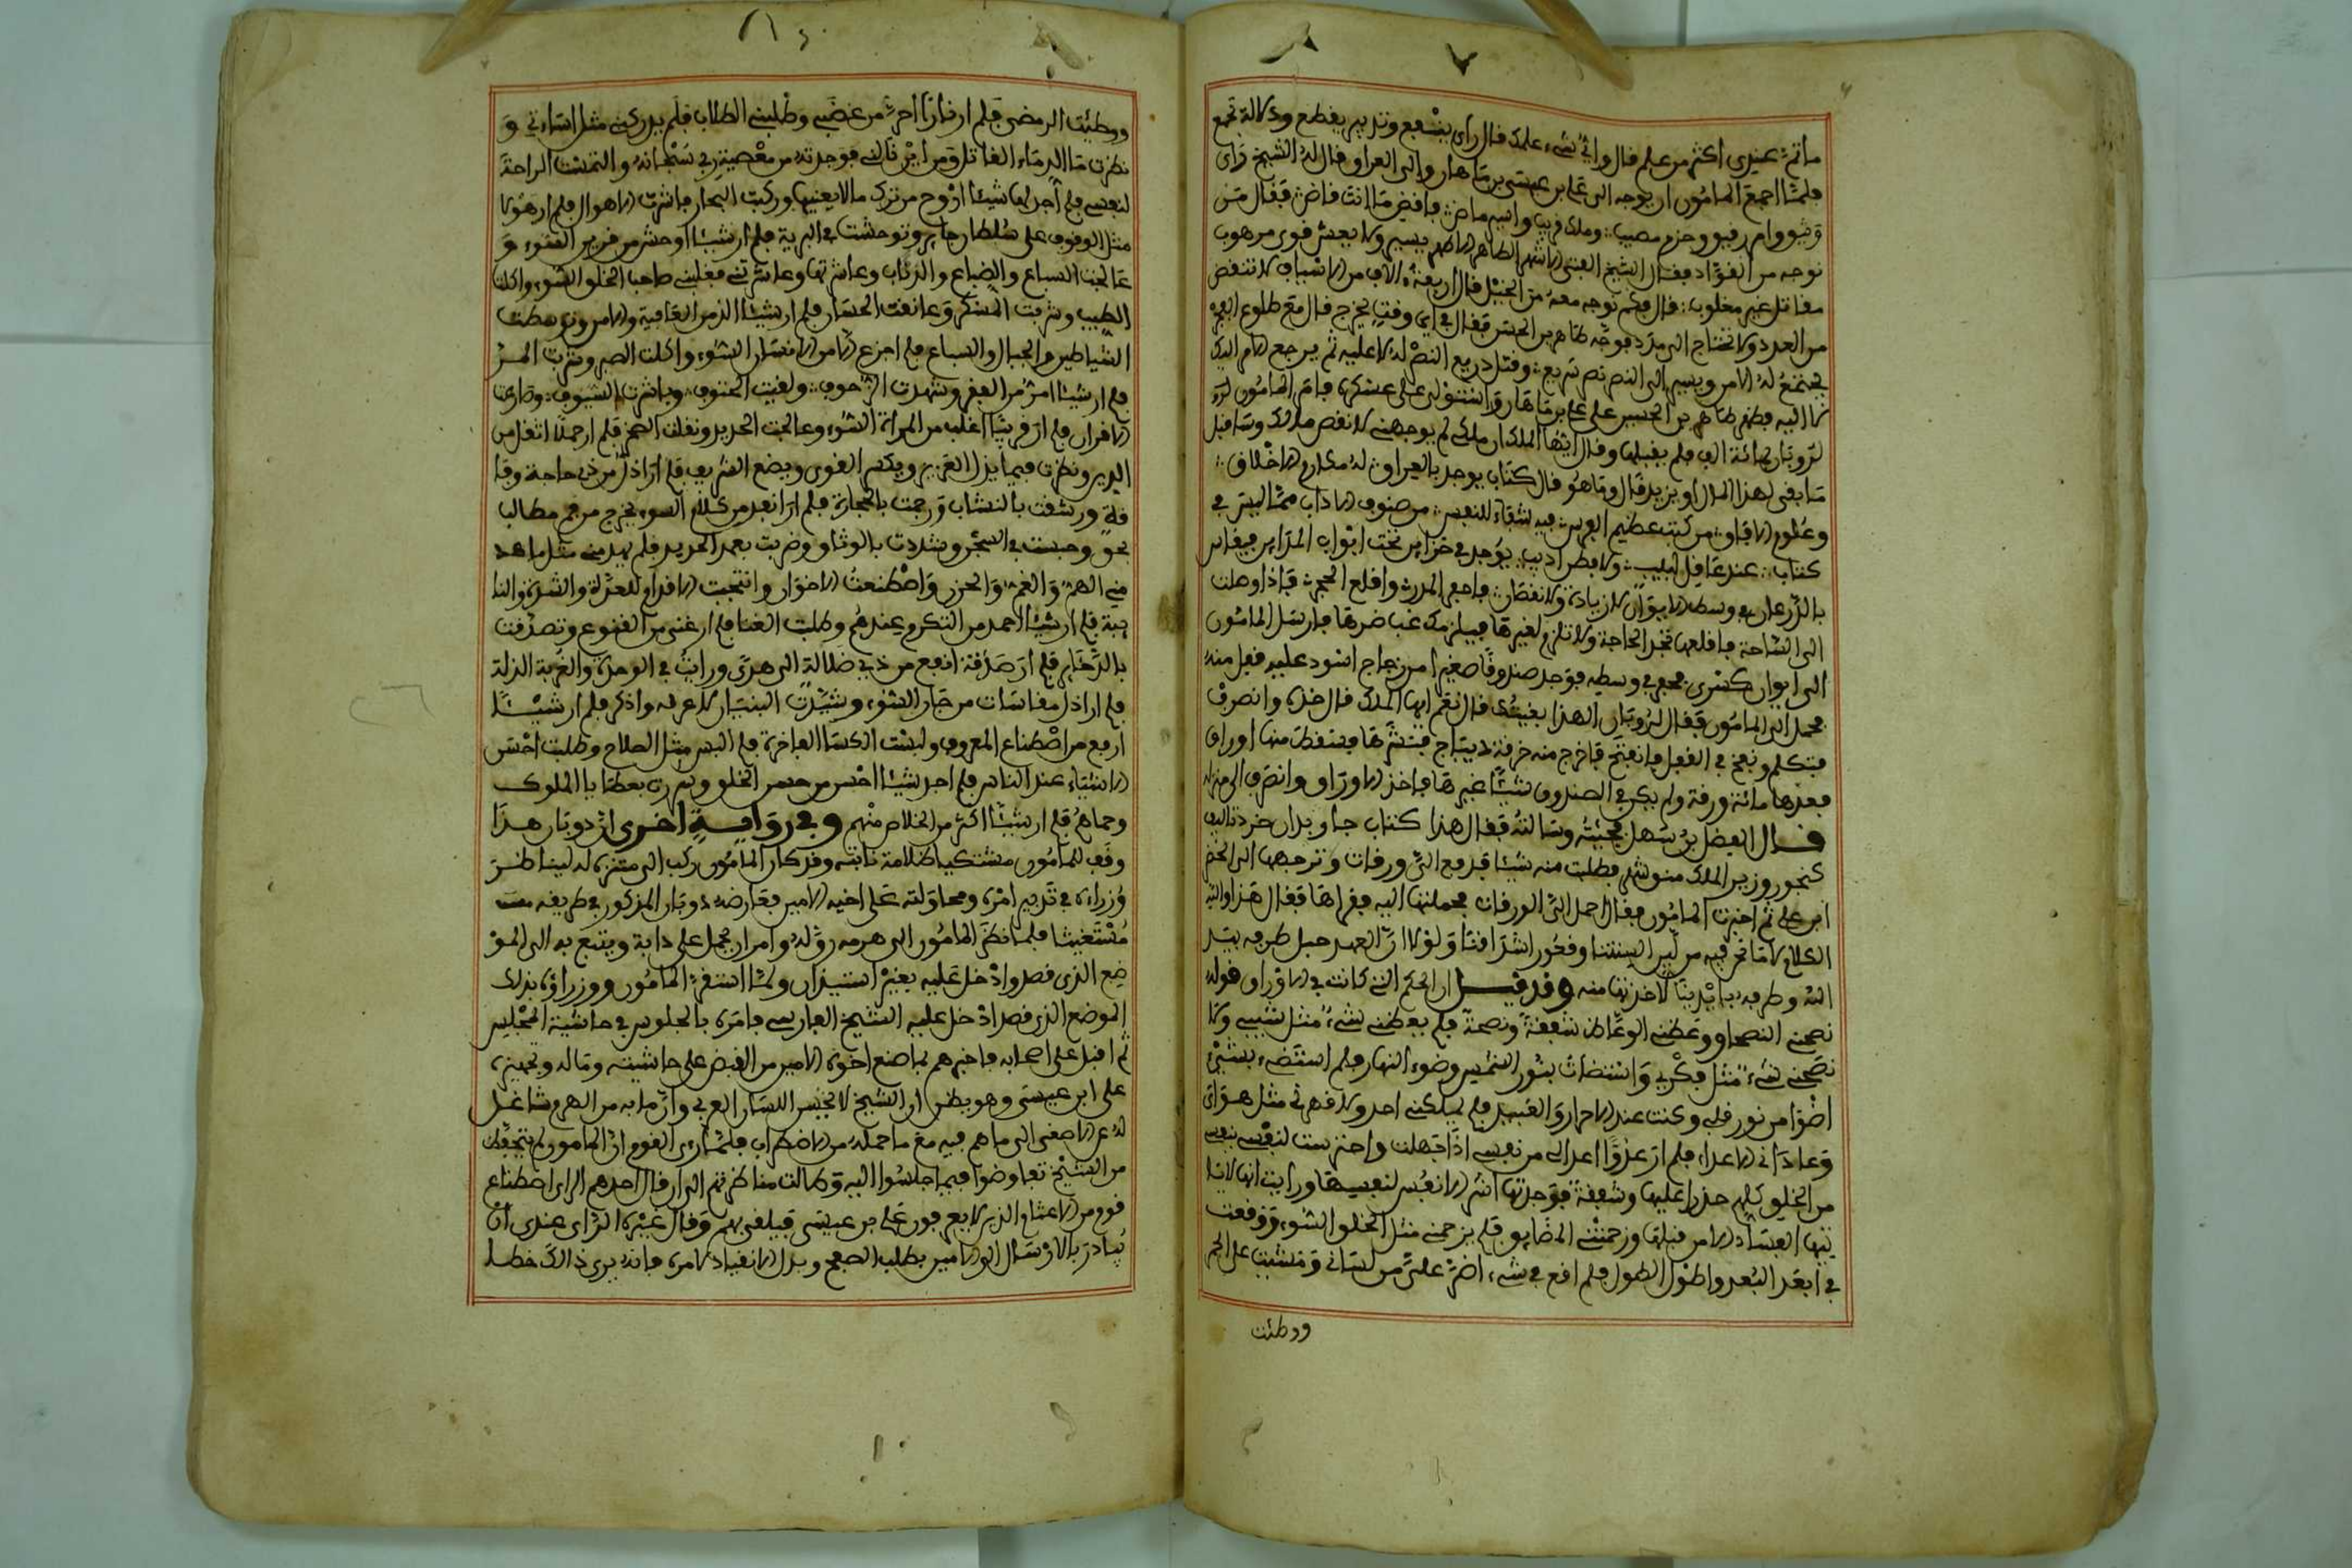 ما ثم عندي اكثر من علم قال واي شيء علمك قال راي ينفع وتدبير يقطع ودلالة تجمع
فلما اجمع المامون ان يوجه الى علي بن عيسى بن ماهان والى العراق قال له الشيخ راي
وثيق وامر رفيق وحزم مصيب وملك قريب والسيه ماض فاقض ما انت قاض فقال من
نوجه من القواد فقال الشيخ الفتى الاشهر الطاهر الاطهر يسير ولا يعثر قوي مرهوب
مقاتل غير مغلوب قال فكم نوجه معه من الخيل قال اربعة ءالاف من الاسياف لا تنقص
من العدد ولا تحتاج الى مدد فوجه طاهر بن الحسين فقال في اي وقت يخرج قال مع طلوع الفجر
يجتمع له الامر ويسير الى النصر نصر سريع وقتل ذريع النصر له لا عليه ثم يرجع الامر اليك
كما اليه فظهر طاهر بن الحسين على علي بن ماهان واستولى على عسكره فامر المامون لذ
لزوبان بمائة الف فلم يقبلها وقال ايها الملك ان ملكي لم يوجهني لانقص مالك وسافبل
ما يفي لهذا المال او يزيد قال وما هو قال كتاب يوجد بالعراق له مكارم الاخلاق
وعلوم الافاق من كتب عظيم الفرس فيه شفاء للنفس من صنوف الاداب مما ليس في
كتاب عند عاقل لبيب ولا فطن اديب يوجد في خزاين تحت ابواب المداين فيقاس
بالذرعان في وسط الايوان لا زيادة ولا نقصان فاحفر المدر واقلع الحجر فاذا وصلت
الى الساجة فاقلعها تجد الحاجة ولا تلزم لغيرها فيلزمك غب ضرها فارسل المامون
الى ايوان كسرى فحفر في وسطه فوجد صندوقا صغيرا من زجاج اسود عليه قفل منه
فحمل الى المامون فقال لذوبان اهذا بغيتك قال نعم ايها الملك قال خذه وانصرف
فتكلم ونفخ في القفل فانفتح فاخرج منه خرقة ديباج فنشرها فسقطت منها اوراق
فعدها مائة ورقة ولم يكن في الصندوق شيئا غيرها فاخذ الاوراق وانصرف الى منزله
قال الفضل بن سهل فجئته وسالته فقال هذا كتاب جاويدان خرد تاليف
كنجور وزير الملك منوشهر فطلبت منه شيئا فدفع الي ورقات وترجمها الى الخضر
ابن علي ثم اخبرت المامون فقال احمل الي الورقات فحملتها اليه فقراها فقال هذا والله
الكلام لا ما نحن فيه من لي السنتنا وفحور اشدافنا ولولا ان العهد حبل طرفه بيد
الله وطرفه بايدينا لاخذتها منه وقد قيل ان الحكم التي كانت في الاوراق قوله
نصحني النصحا ووعظني الوعاظ شفقة ونصحة فلم يعظني شيء مثل شيبي ولا
نصحني شيء مثل فكري واستضات بنور الشمس وضوء النهار فلم استضء بشيء
اضوا من نور قلبي وكنت عند الاحرار والعبيد فلم يملكني احد ولا قهرني مثل هواي
وعاداني الاعداء فلم ار عدوا اعدا لي من نفسي اذا جهلت واحترست لنفسي بنفسي
من الخلق كلهم حذرا عليها وشفقة فوجدتها اشر الانفس لنفسها ورايت انها لا يا
تيها الفساد الا من قبلها وزحمتني المضايق فلم يزحمني مثل الخلق السوء ووقعت
في ابعد البعد واطول الطول فلم اقع في شيء اضر علي من لساني ومشيت على الجمر
ووطئت
ووطئت الرمضى فلم ار نارا احر من غضبي وطلبني الطلاب فلم يدركني مثل اساءتي و
نظرت ما الداء القاتل ومن اين نالني فوجدته من معصية ربي سبحانه والتمست الراحة
لنفسي فلم اجد لها شيئا اروح من ترك ما لا يعنيها وركبت البحار فاشرت الاهوال فلم ار هولا
مثل الوقوف على سلطان جاير وتوحشت في البرية فلم ار شيئا اوحش من قرين السوء و
عالجت السباع والضباع والذئاب وعاشرتها وعاشرتني فغلبني صاحب الخلق السوء واكلت
الطيب وشربت المسكر وعانقت الحسان فلم ار شيئا الذ من العافية والامن وتوسطت
الشياطين والجبال والسباع فلم اجزع الا من الانسان السوء واكلت الصبر وشربت المر
فلم ار شيئا امر من الفقر وشهدت الزحوف ولقيت الحتوف وباشرت السيوف وصارعت
الاقران فلم ار قرينا اغلب من المراة السوء وعالجت الحديد ونقلت الصخر فلم ار حملا اثقل من
الدين ونظرت فيما يذل العزيز ويكسر القوي ويضع الشريف فلم ار اذل من ذي حاجة وفا
قة ورشقت بالنشاب ورجمت بالحجارة فلم ار انفذ من كلام السوء يخرج من فم مطالب
بحق وحبست في السجن وشددت بالوثاق وضربت بعمد الحديد فلم يهدمني مثل ما هد
مني الهم والغم والحزن واصطنعت الاخوان وانتخبت الاقوام للعدة والشدة والنا
يبة فلم ار شيئا احمد من التكرم عندهم وطلبت الغنا فلم ار غنى من القنوع وتصدقت
بالذخاير فلم ار صدقة انفع من ذي ضلالة الى هدى ورايت في الوحدة والغربة الذلة
فلم ار اذل مقاسات من جار السوء وشيدت البنيان لاعرف واذكر فلم ار شيئا
ارفع من اصطناع المعروف ولبست الكسا الفاخرة فلم البس مثل الصلاح وطلبت احسن
الاشياء عند الناس فلم اجد شيئا احسن من حسن الخلق وسررت بعطايا الملوك
وحماهم فلم ار شيئا اكثر من الخلاص منهم وفي رواية اخرى ان دوبان هذا
وقف للمامون مشتكيا ظلامة نابته وقد كان المامون ركب الى متنزه له ليناظر
وزراءه في تدبير امره ومحاولته على اخيه الامير فعارضه دوبان المذكور في طريقه
مستغيثا فلما نظر المامون الى هرمه رق له وامر ان يحمل على دابة ويتبع به الى المو
ضع الذي قصد وادخل عليه بغير استيذان ولما استقر المامون ووزراؤه بذلك
الموضع الذي قصد ادخل عليه الشيخ الفارسي فامره بالجلوس في حاشية المجلس
ثم اقبل على اصحابه فاخبرهم بما صنع اخوه الامير من القبض على حاشيته وماله وتجهيزه
على ابن عيسى وهو يظن ان الشيخ لا يحسن اللسان العربي وان ما به من الهرم شاغل
له عن الاصغى الى ما هم فيه مع ما حمله من الاضطراب فلما راى القوم ان المامون لم يتحفظ
من الشيخ تفاوضوا فيما جلسوا اليه وطالت مناظرتهم الى ان قال احدهم الراي اصطناع
قوم من الاعشام الذين لا يعرفون علي بن عيسى فيلقى بهم وقال غيره الراي عندي ان
تبادر بالارسال الى الامير بطلب الصفح وبذل الانقياد لامره فانه يرى ذالك خطا